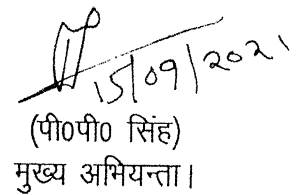 15/09/2021
(पी0पी0 सिंह)
मुख्य अभियन्ता।